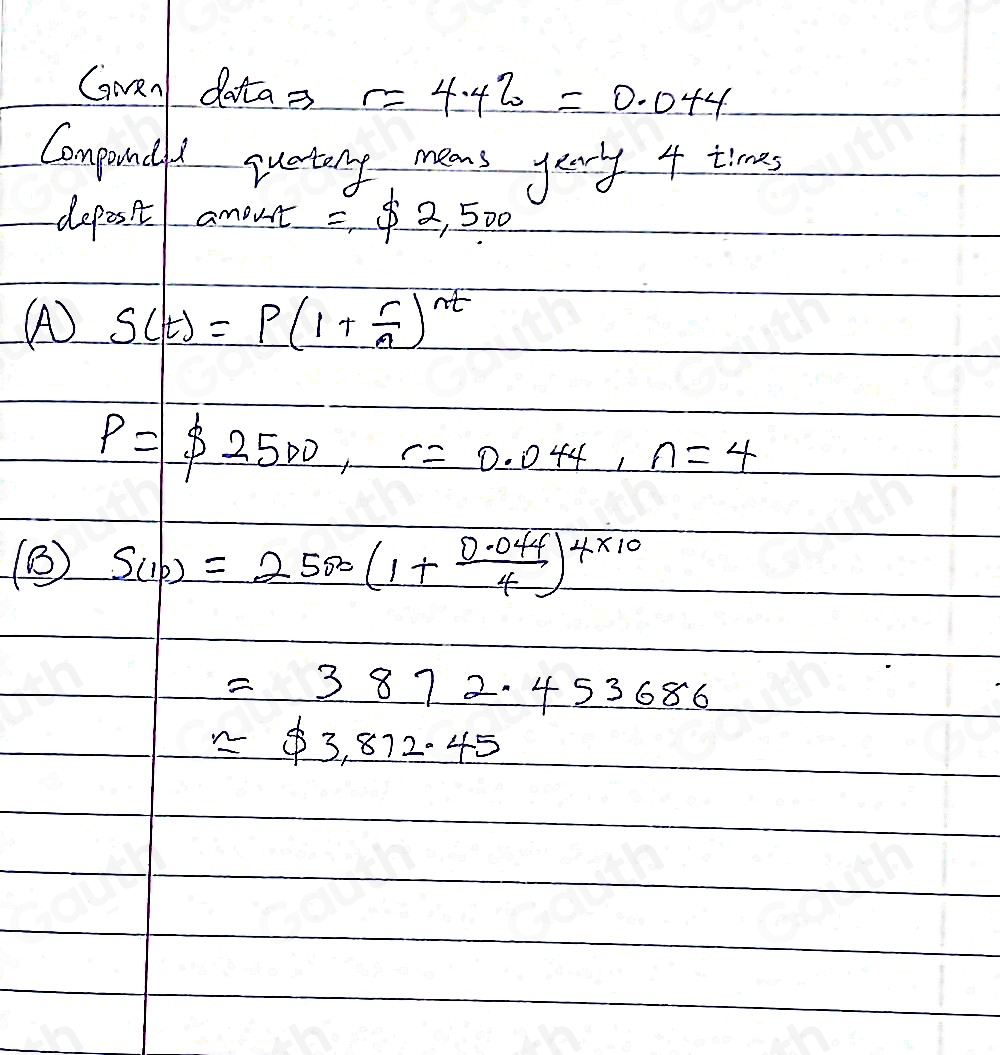 Given data ⇒ r = 4.4% = 0.044
Compounded quaterly means yearly 4 times
deposit amount = $ 2,500
(A) S(t) = P(1 + r/n)^nt
P = $ 2500, r = 0.044, n = 4
(B) S(10) = 2500 (1 + 0.044/4)^4×10
= 3872.453686
≃ $3,872.45